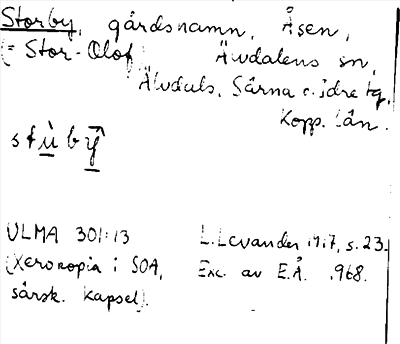 Storby, gårdsnamn, Åsen,
(= Stor-Olof) Älvdalens sn,
Älvdals, Särna o. Idre tg,
Kopp. län.
stùbŷ
ULMA 301:13 L. Levander 1917, s. 23.
(Xerokopia i SOA, Exc. av E.Å. 1968.
särsk. kapsel).